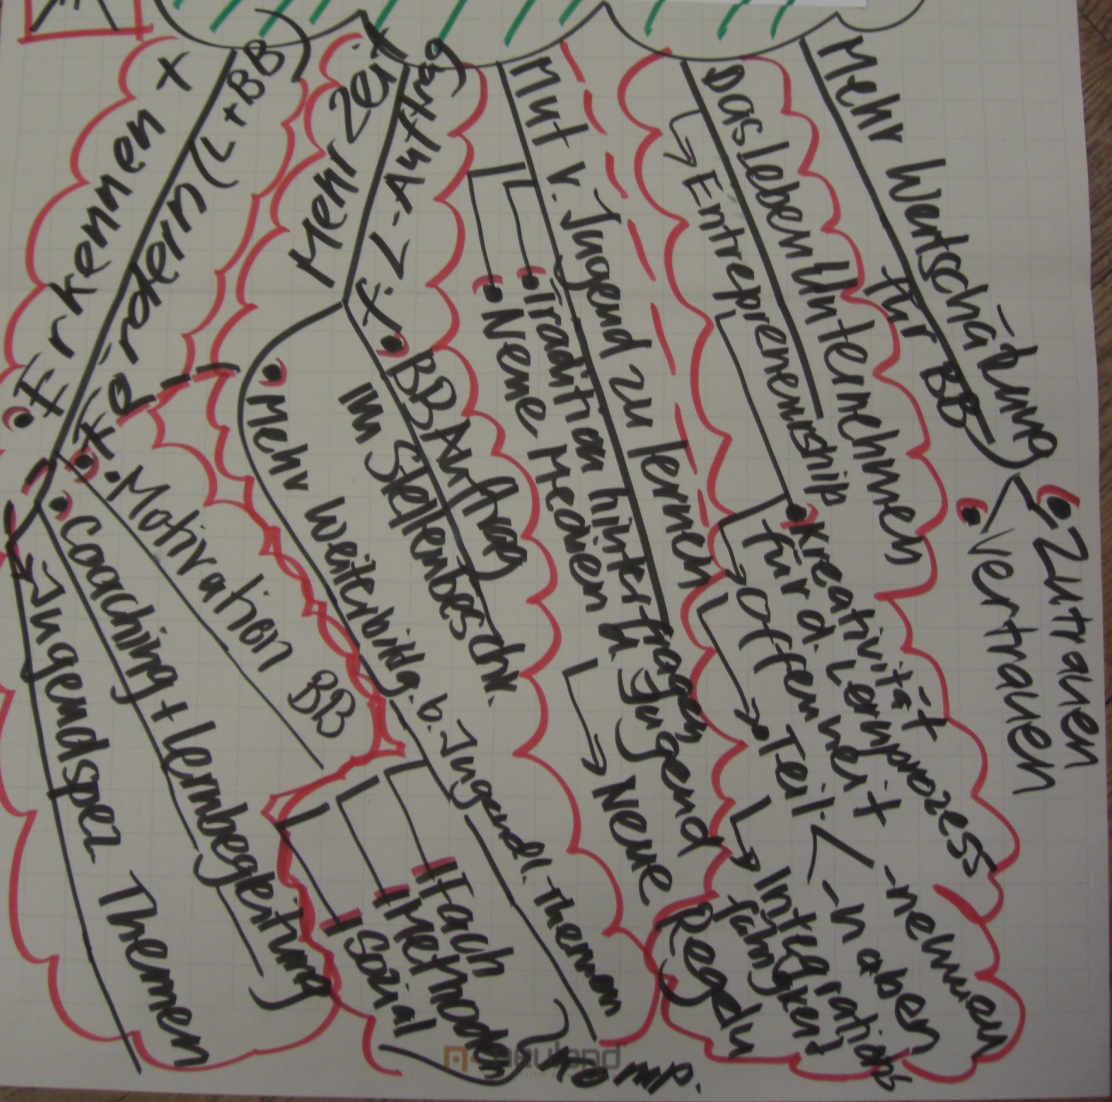 Erkennen +
Fördern (L+BB)
Motivation BB
Coaching + Lernbegleitung
Jugendspez Themen
Mehr Zeit
f. L-Auftrag
BB Auftrag
im Stellenbeschr.
Mehr Weiterbildg. b. Jugendl. themen
Fach
Methoden
Sozial
Komp.
Mut v. Jugend zu lernen
Tradition hinterfragen
Neue Medien Jugend
Neue
Regeln
Das Leben Unternehmen
Entrepreneurship
Kreativität
für d. Lernprozess
Offenheit
Teil
-nehmen
-haben
Integrations
fähigkeit
Mehr Wertschätzung
für BB
Zutrauen
Vertrauen
neuland